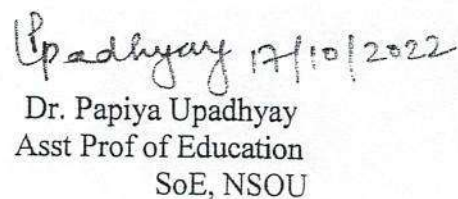 Upadhyay 17/10/2022
Dr. Papiya Upadhyay
Asst Prof of Education
SoE, NSOU